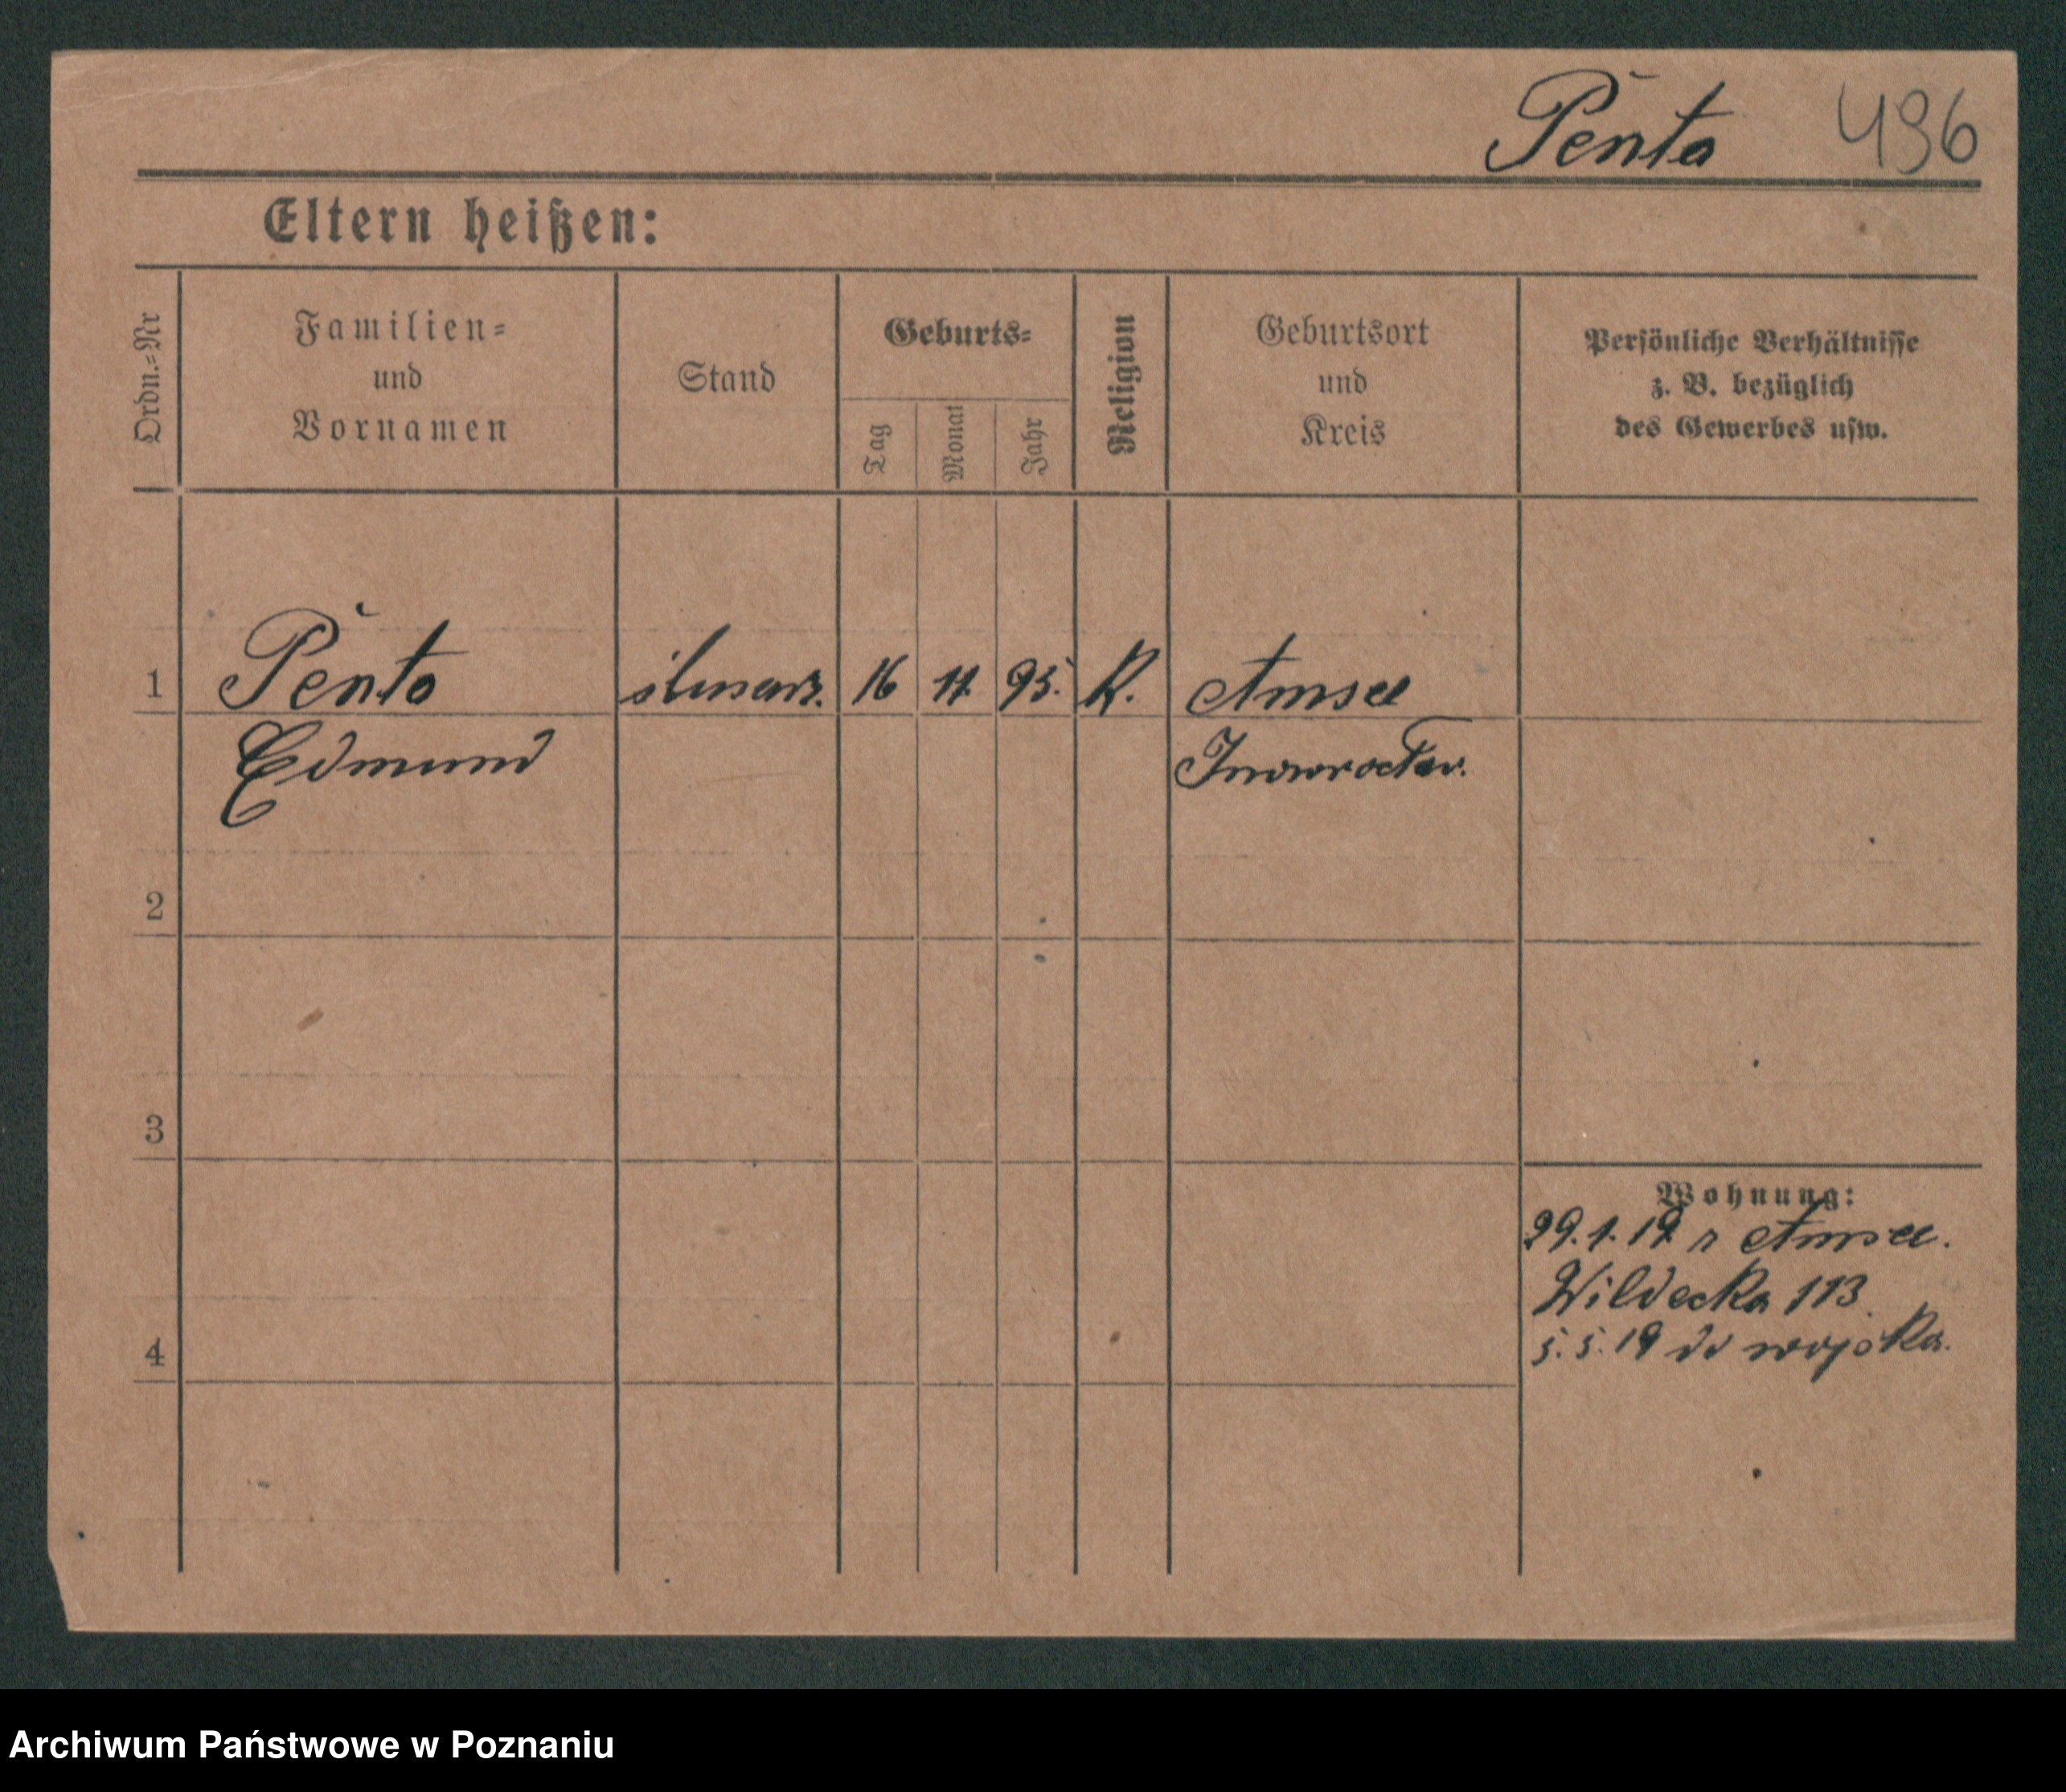 Penta 496
Eltern heißen:
Ordn.-Nr
Familien-
und
Vornamen
Stand
Geburts-
Tag
Monat
Jahr
Religion
Geburtsort
und
Kreis
Persönliche Verhältnisse
z. B. bezüglich
des Gewerbes usw.
1 Penta ślusarz. 16 11. 95. K. Amsee
Edmund Inowrocław.
2
3
Wohnung:
29.1.19 z Amsee.
Wildecka 113.
5.5.19 do wojska.
4
Archiwum Państwowe w Poznaniu